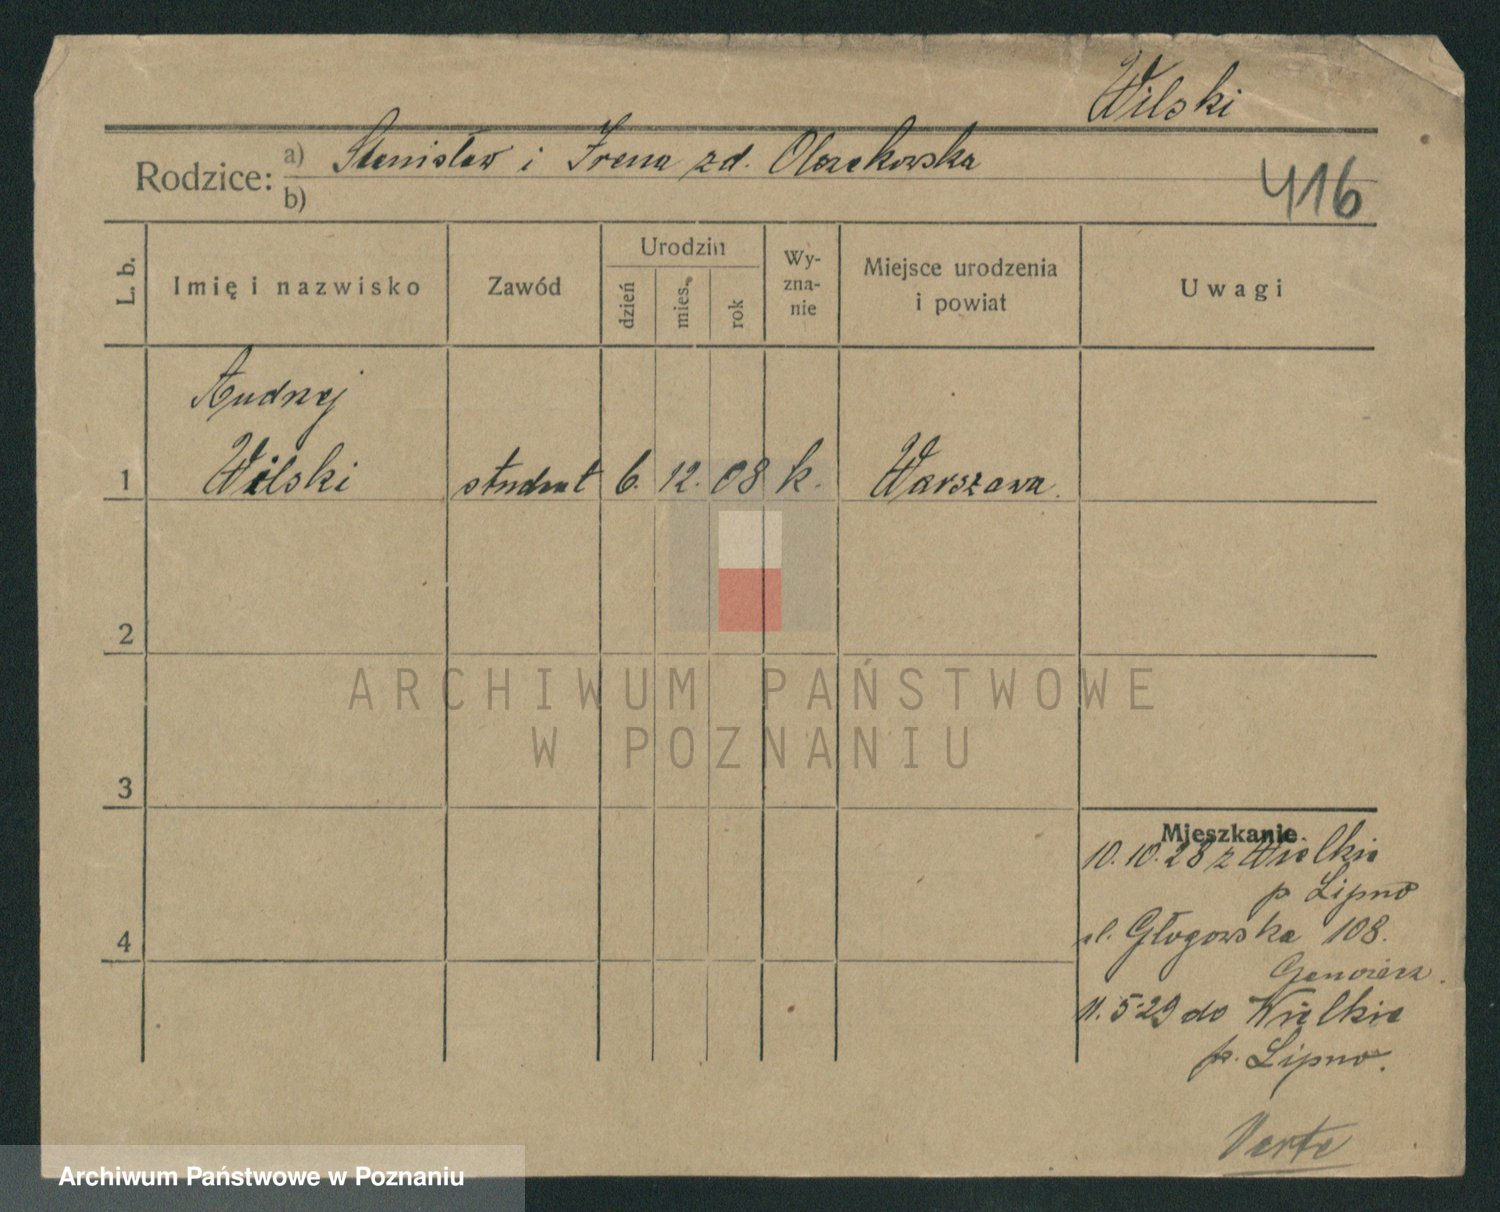 Wilski
Rodzice: a) Stanisław i Irena zd. Olszakowska
b)
416
L. b.
Imię i nazwisko
Zawód
Urodzin
dzień
mies.
rok
Wy-
zna-
nie
Miejsce urodzenia
i powiat
Uwagi
Andrzej
1 Wilski student 6. 12. 08 k. Warszawa.
2
ARCHIWUM PAŃSTWOWE
W POZNANIU
3
Mieszkanie
10.10.28 z Wielkie
p Lipno
ul. Głogowska 108.
11.5.29 do Wielkie
p. Lipno.
4
Verte
Archiwum Państwowe w Poznaniu